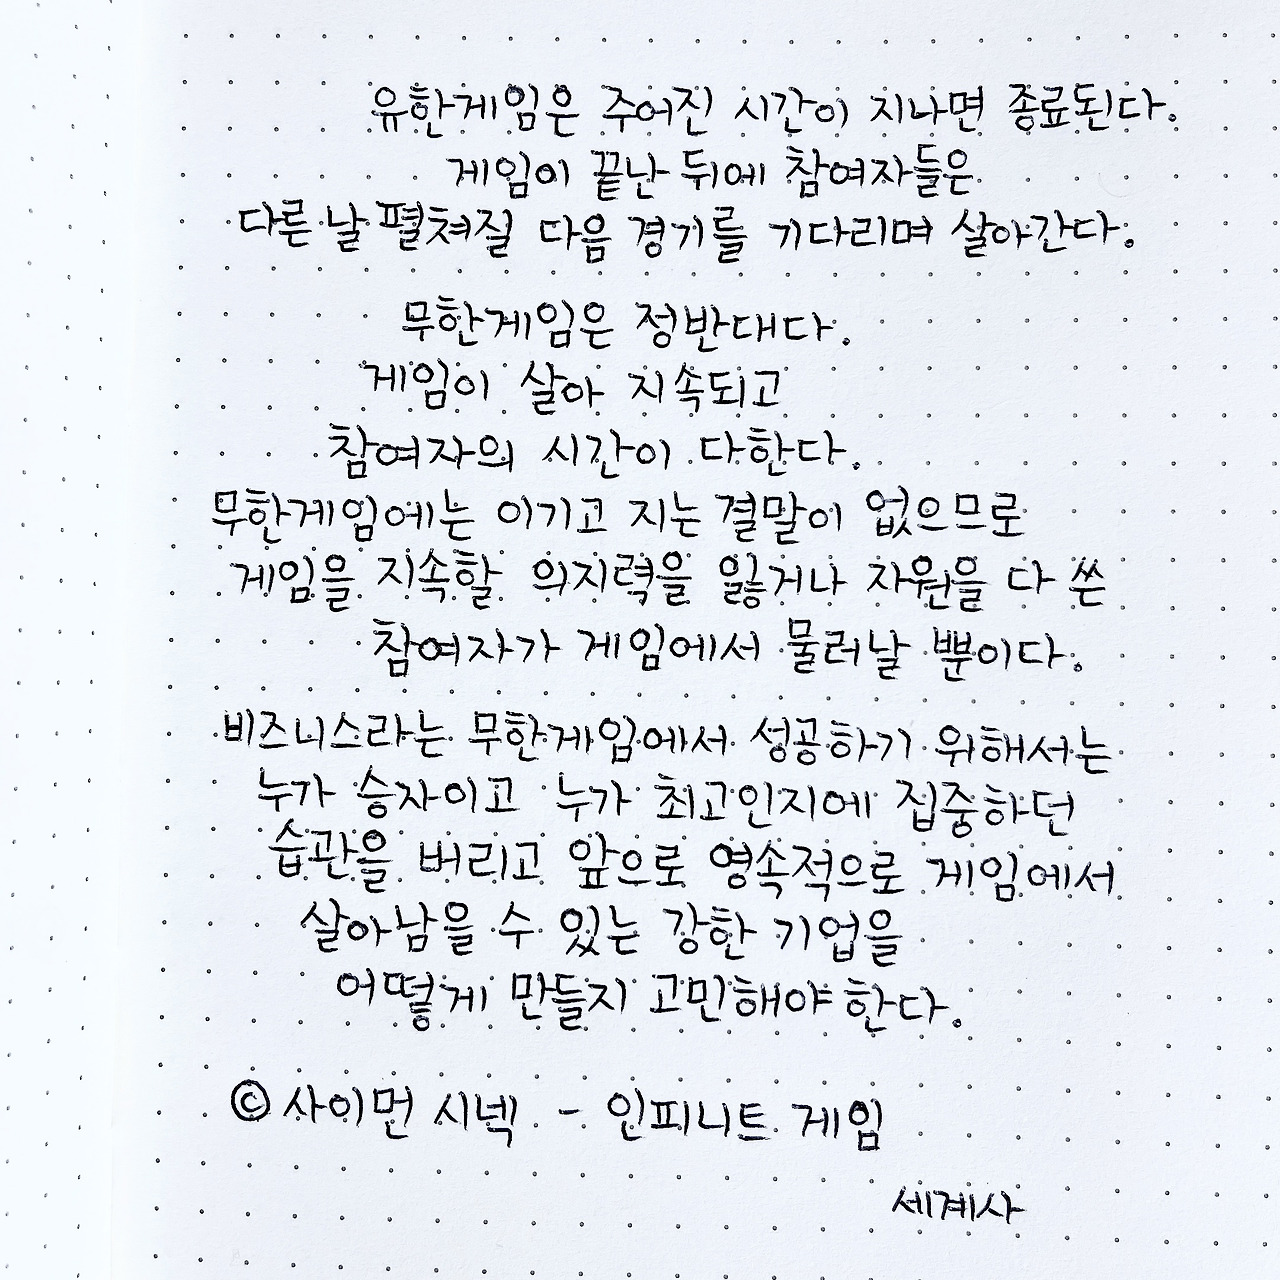 유한게임은 주어진 시간이 지나면 종료된다.
게임이 끝난 뒤에 참여자들은
다른 날 펼쳐질 다음 경기를 기다리며 살아간다.
무한게임은 정반대다.
게임이 살아 지속되고
참여자의 시간이 다한다.
무한게임에는 이기고 지는 결말이 없으므로
게임을 지속할 의지력을 잃거나 자원을 다 쓴
참여자가 게임에서 물러날 뿐이다.
비즈니스라는 무한게임에서 성공하기 위해서는
누가 승자이고 누가 최고인지에 집중하던
습관을 버리고 앞으로 영속적으로 게임에서
살아남을 수 있는 강한 기업을
어떻게 만들지 고민해야 한다.
© 사이먼 시넥 - 인피니트 게임
세계사